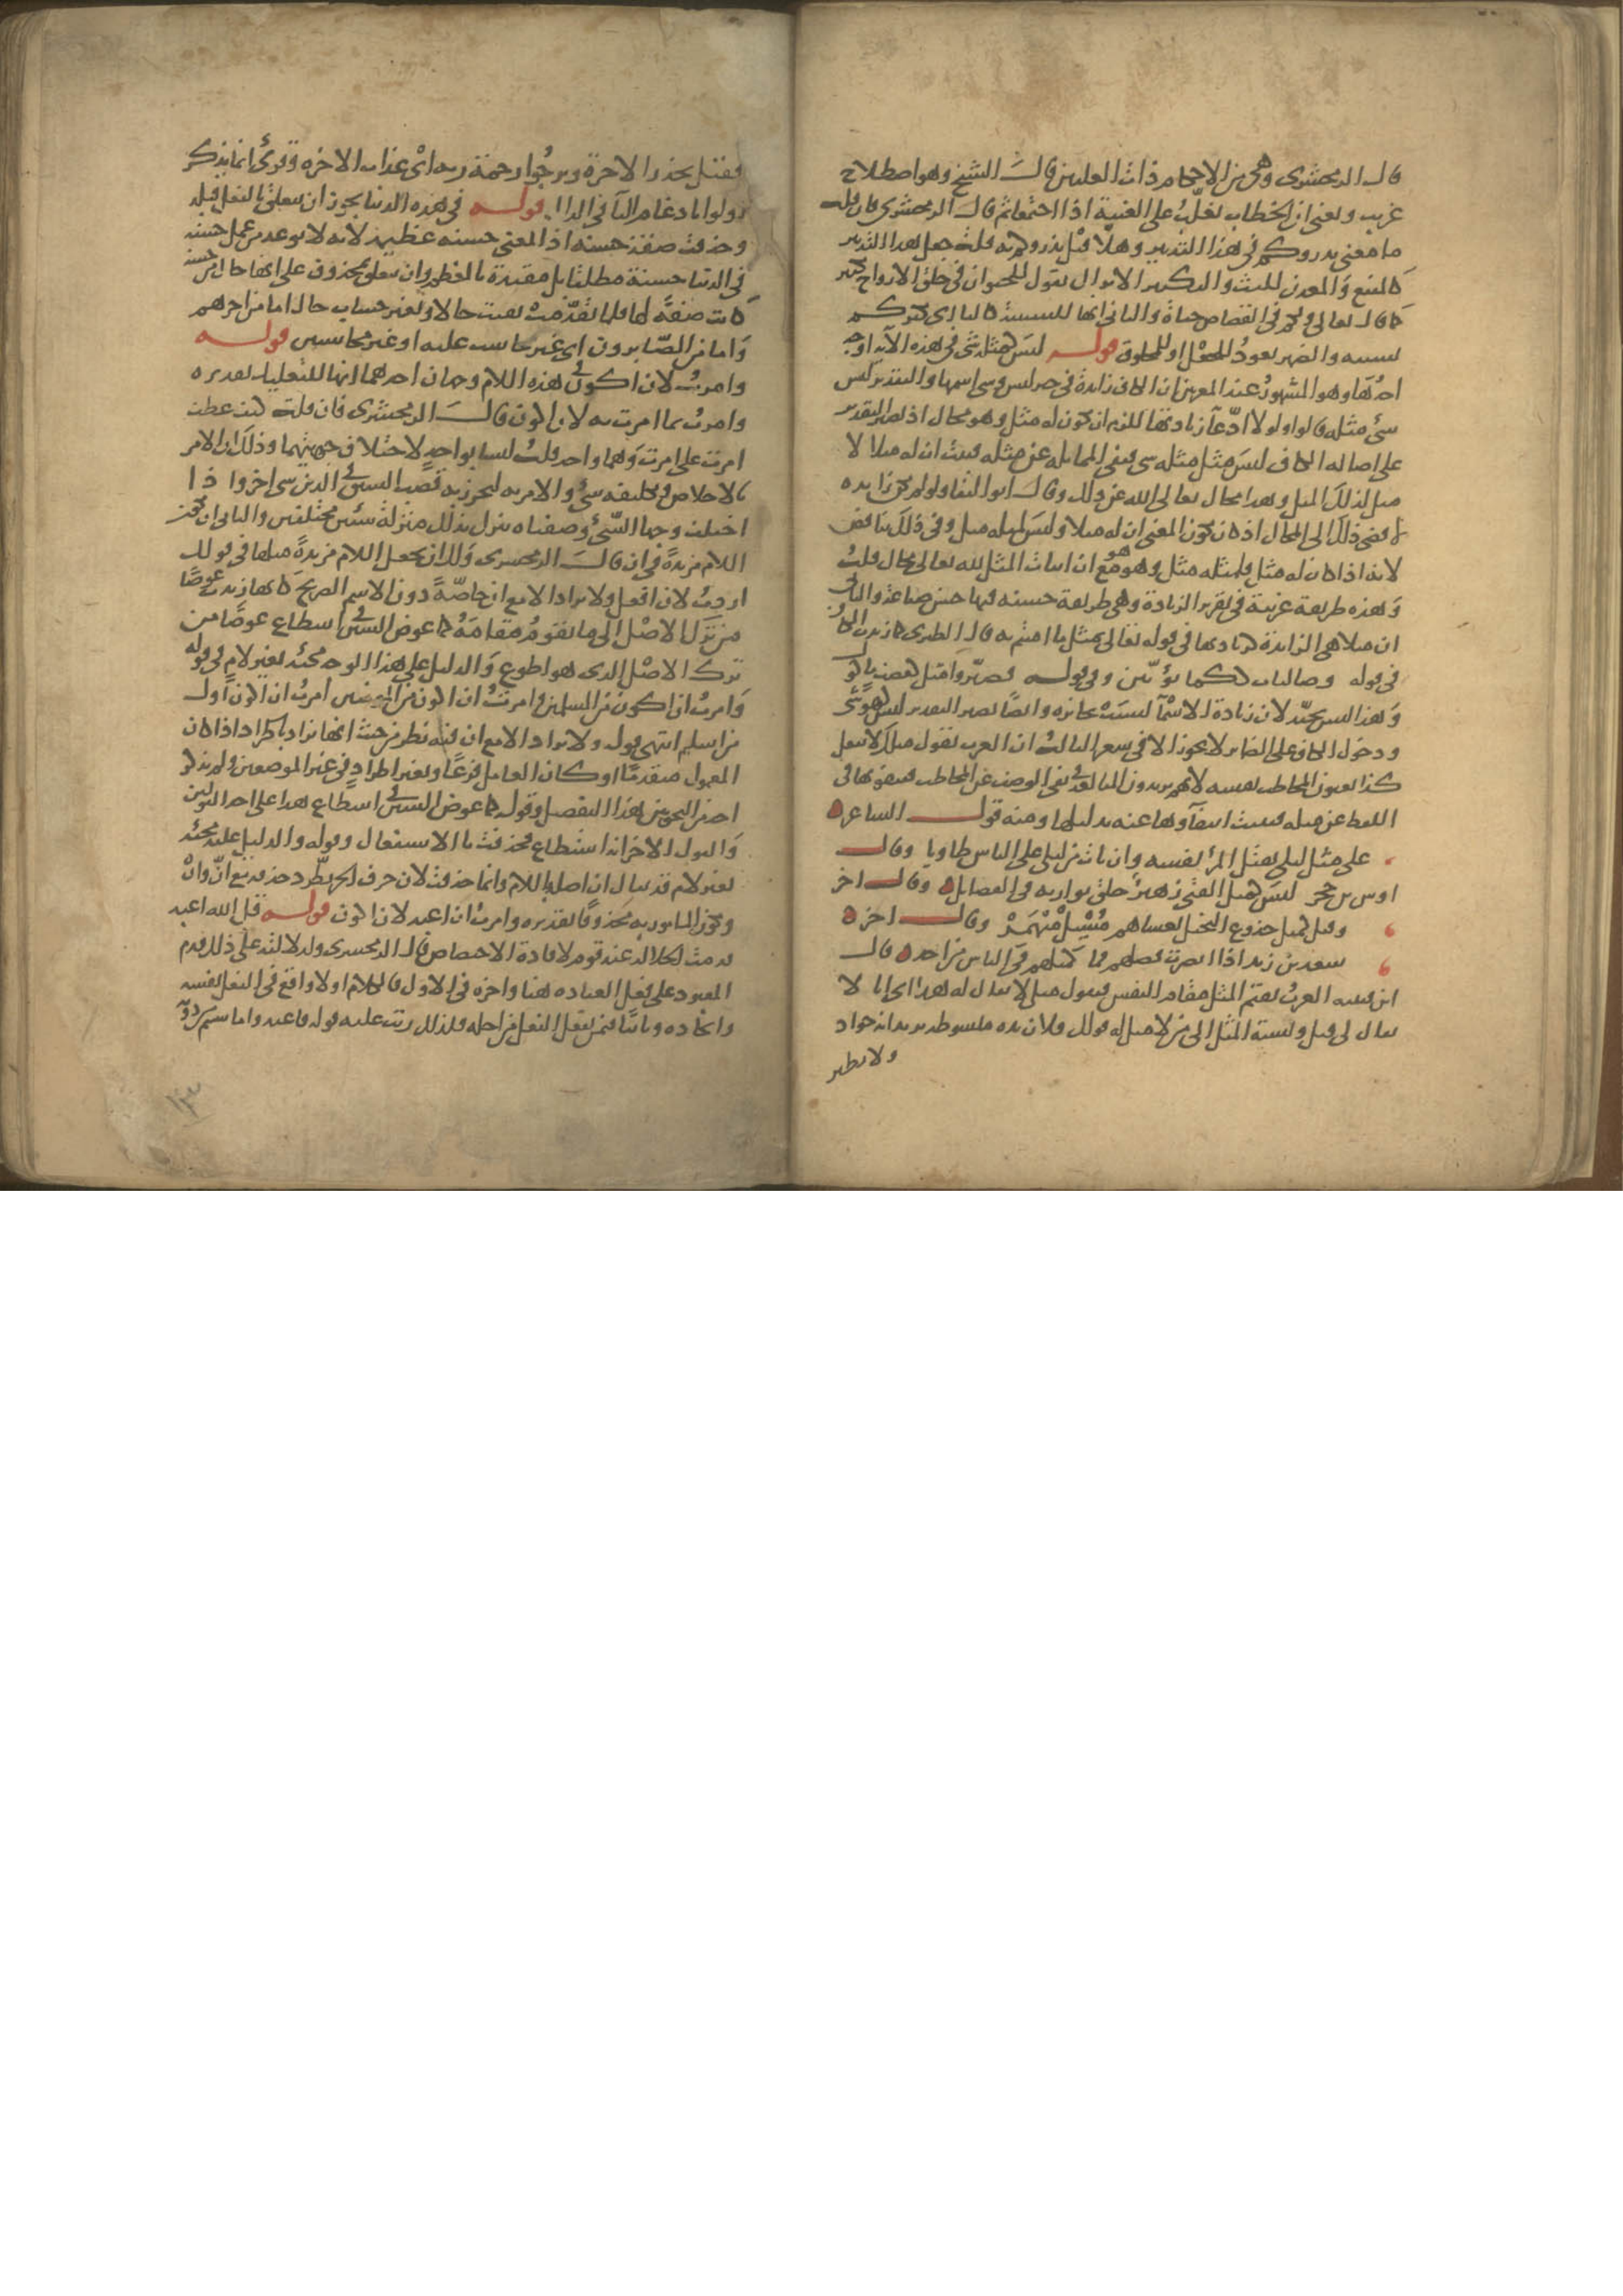 قال الزمخشرى وهى من الاحكام ذات العلتين قال الشيخ وهو اصطلاح
غريب ويعنى ان الخطاب يغلب على الغيبة اذا اجتمعا ثم قال الزمخشرى فان قلت
ما معنى يذروكم فى هذا التدبير وهلا قيل يذروكم به قلت جعل هذا التدبير
كالمنبع والمعدن للبث والتكثير الا تراك تقول للحيوان فى خلق الازواج تكثير
كما قال تعالى ولكم فى القصاص حياة والثانى انها للسببية كالباء اى يكثركم
بسببه والضمير يعود للجعل او للمخلوق قوله ليس كمثله شى فى هذه الآية اوجه
احدها وهو المشهور عند المعربين ان الكاف زايدة فى خبر ليس وشى اسمها والتقدير ليس
شئ مثله قالوا ولولا ادعآ زيادتها للزم ان يكون له مثل وهو محال اذ يصير التقدير
على اصالة الكاف ليس مثل مثله شى فنفى المماثلة عن مثله فثبت ان له مثلا لا
مثل لذلك المثل وهذا محال تعالى الله عن ذلك وقال ابو البقا ولو لم تكن زايده
لافضى ذلك الى المحال اذ كان يكون المعنى ان له مثلا وليس لمثله مثل وفى ذلك تناقض
لانه اذا كان له مثل فلمثله مثل وهو هو مع ان اثبات المثل لله تعالى محال قلت
وهذه طريقة غريبة فى تقرير الزيادة وهى طريقة حسنه فيها حسن صناعة والثانى
ان مثلا هى الزايدة كزيادتها فى قوله تعالى بمثل ما امنتم به قال الطبرى كما زيدت الكاف
فى قوله وصاليات ككما يؤثفين وفى قوله فصيروا مثل كعصف ماكول
وهذا ليس بجيد لان زيادة الاسمآ ليست بجائزه وايضا يصير التقدير ليس كهو شى
ودخول الكاف على الضماير لا يجوز الا فى شعر الثالث ان العرب تقول مثلك لا يفعل
كذا يعنون المخاطب نفسه لانهم يريدون المبالغة فى نفى الوصف عن المخاطب فينفونها فى
اللفظ عن مثله فيثبت انتفاوها عنه بدليلها ومنه قول الشاعر
على مثل ليلى يقتل المرء نفسه وان بات من ليلى على الناس طاويا وقال
اوس بن حجر ليس كمثل الفتى زهير خلق يوازيه فى الفضايل وقال اخر
وقتلى كمثل جذوع النخل تغشاهم مسبل منهمر وقال اخر
سعد بن زيد اذا ابصرت فضلهم فما كمثلهم فى الناس من احد قال
ابن قتيبه العرب تقيم المثل مقام النفس فيقول مثلى لا يقال له هذا اى انا لا
يقال لى قيل ونسبة المثل الى من لا مثل له قولك فلان يده مبسوطه يريد انه جواد
ولا نظير
فقيل يحذر الاخرة ويرجوا رحمة ربه اى عذاب الاخره وقرئ انما يذكر
اولوا بادغام التآ فى الذال قوله فى هذه الدنيا يجوز ان يتعلق بالفعل قبله
وحذفت صفة حسنه اذ المعنى حسنه عظيمه لانه لا يوعد من عمل حسنه
فى الدنيا حسنة مطلقا بل مقيدة بالعظم وان يتعلق بمحذوف على انها حال من حسنة
كانت صفة لها فلما تقدمت بقيت حالا وبغير حساب حال اما من اجرهم
واما من الصابرون اى غير محاسب عليه او غير محاسبين قوله
وامرت لان اكون فى هذه اللام وجهان احدهما انها للتعليل تقديره
وامرت بما امرت به لان اكون قال الزمخشرى فان قلت كيف عطف
امرت على امرت وهما واحد قلت ليسا بواحد لاختلاف جهتيهما وذلك ان الامر
بالاخلاص وتكليفه شئ والامر به ليحرز به قصب السبق فى الدين شى اخر واذا
اختلف وجها الشئ وصفتاه ينزل بذلك منزلة شيئين مختلفين والثانى ان تكون
اللام مزيدة فى ان قال الزمخشرى ولك ان تجعل اللام مزيدة مثلها فى قولك
اردت لان افعل ولا تزاد الا مع ان خاصة دون الاسم الصريح كانها زيدت عوضا
من ترك الاصل الى ما يقوم مقامه كما عوض السين فى اسطاع عوضا من
ترك الاصل الذى هو اطوع والدليل على هذا الوجه مجئه بغير لام فى قوله
وامرت ان اكون من المسلمين وامرت ان اكون من المومنين امرت ان اكون اول
من اسلم انتهى قوله ولا تزاد الا مع ان فيه نظر من حيث انها تزاد باطراد اذا كان
المعمول متقدما او كان العامل فرعا وبغير اطراد فى غير الموضعين ولم يذكر
احد من النحويين هذا التفصيل وقوله كما عوض السين فى اسطاع هذا على احد القولين
والقول الاخر انه استطاع فحذفت تا الاستفعال وقوله والدليل عليه مجئه
بغير لام قد يقال ان اصله باللام وانما حذفت لان حرف الجر يطرد حذفه مع ان وان
ويكون المامور به محذوفا تقديره وامرت ان اعبد لان اكون قوله قل الله اعبد
قدمت الجلاله عند قوم لافادة الاختصاص قال الزمخشرى ولدلالته على ذلك قدم
المعبود على فعل العباده هنا واخره فى الاول فالكلام اولا واقع فى الفعل نفسه
وايجاده وثانيا فيمن يفعل الفعل من اجله فلذلك رتب عليه قوله فاعبدوا ما شيتم من دونه